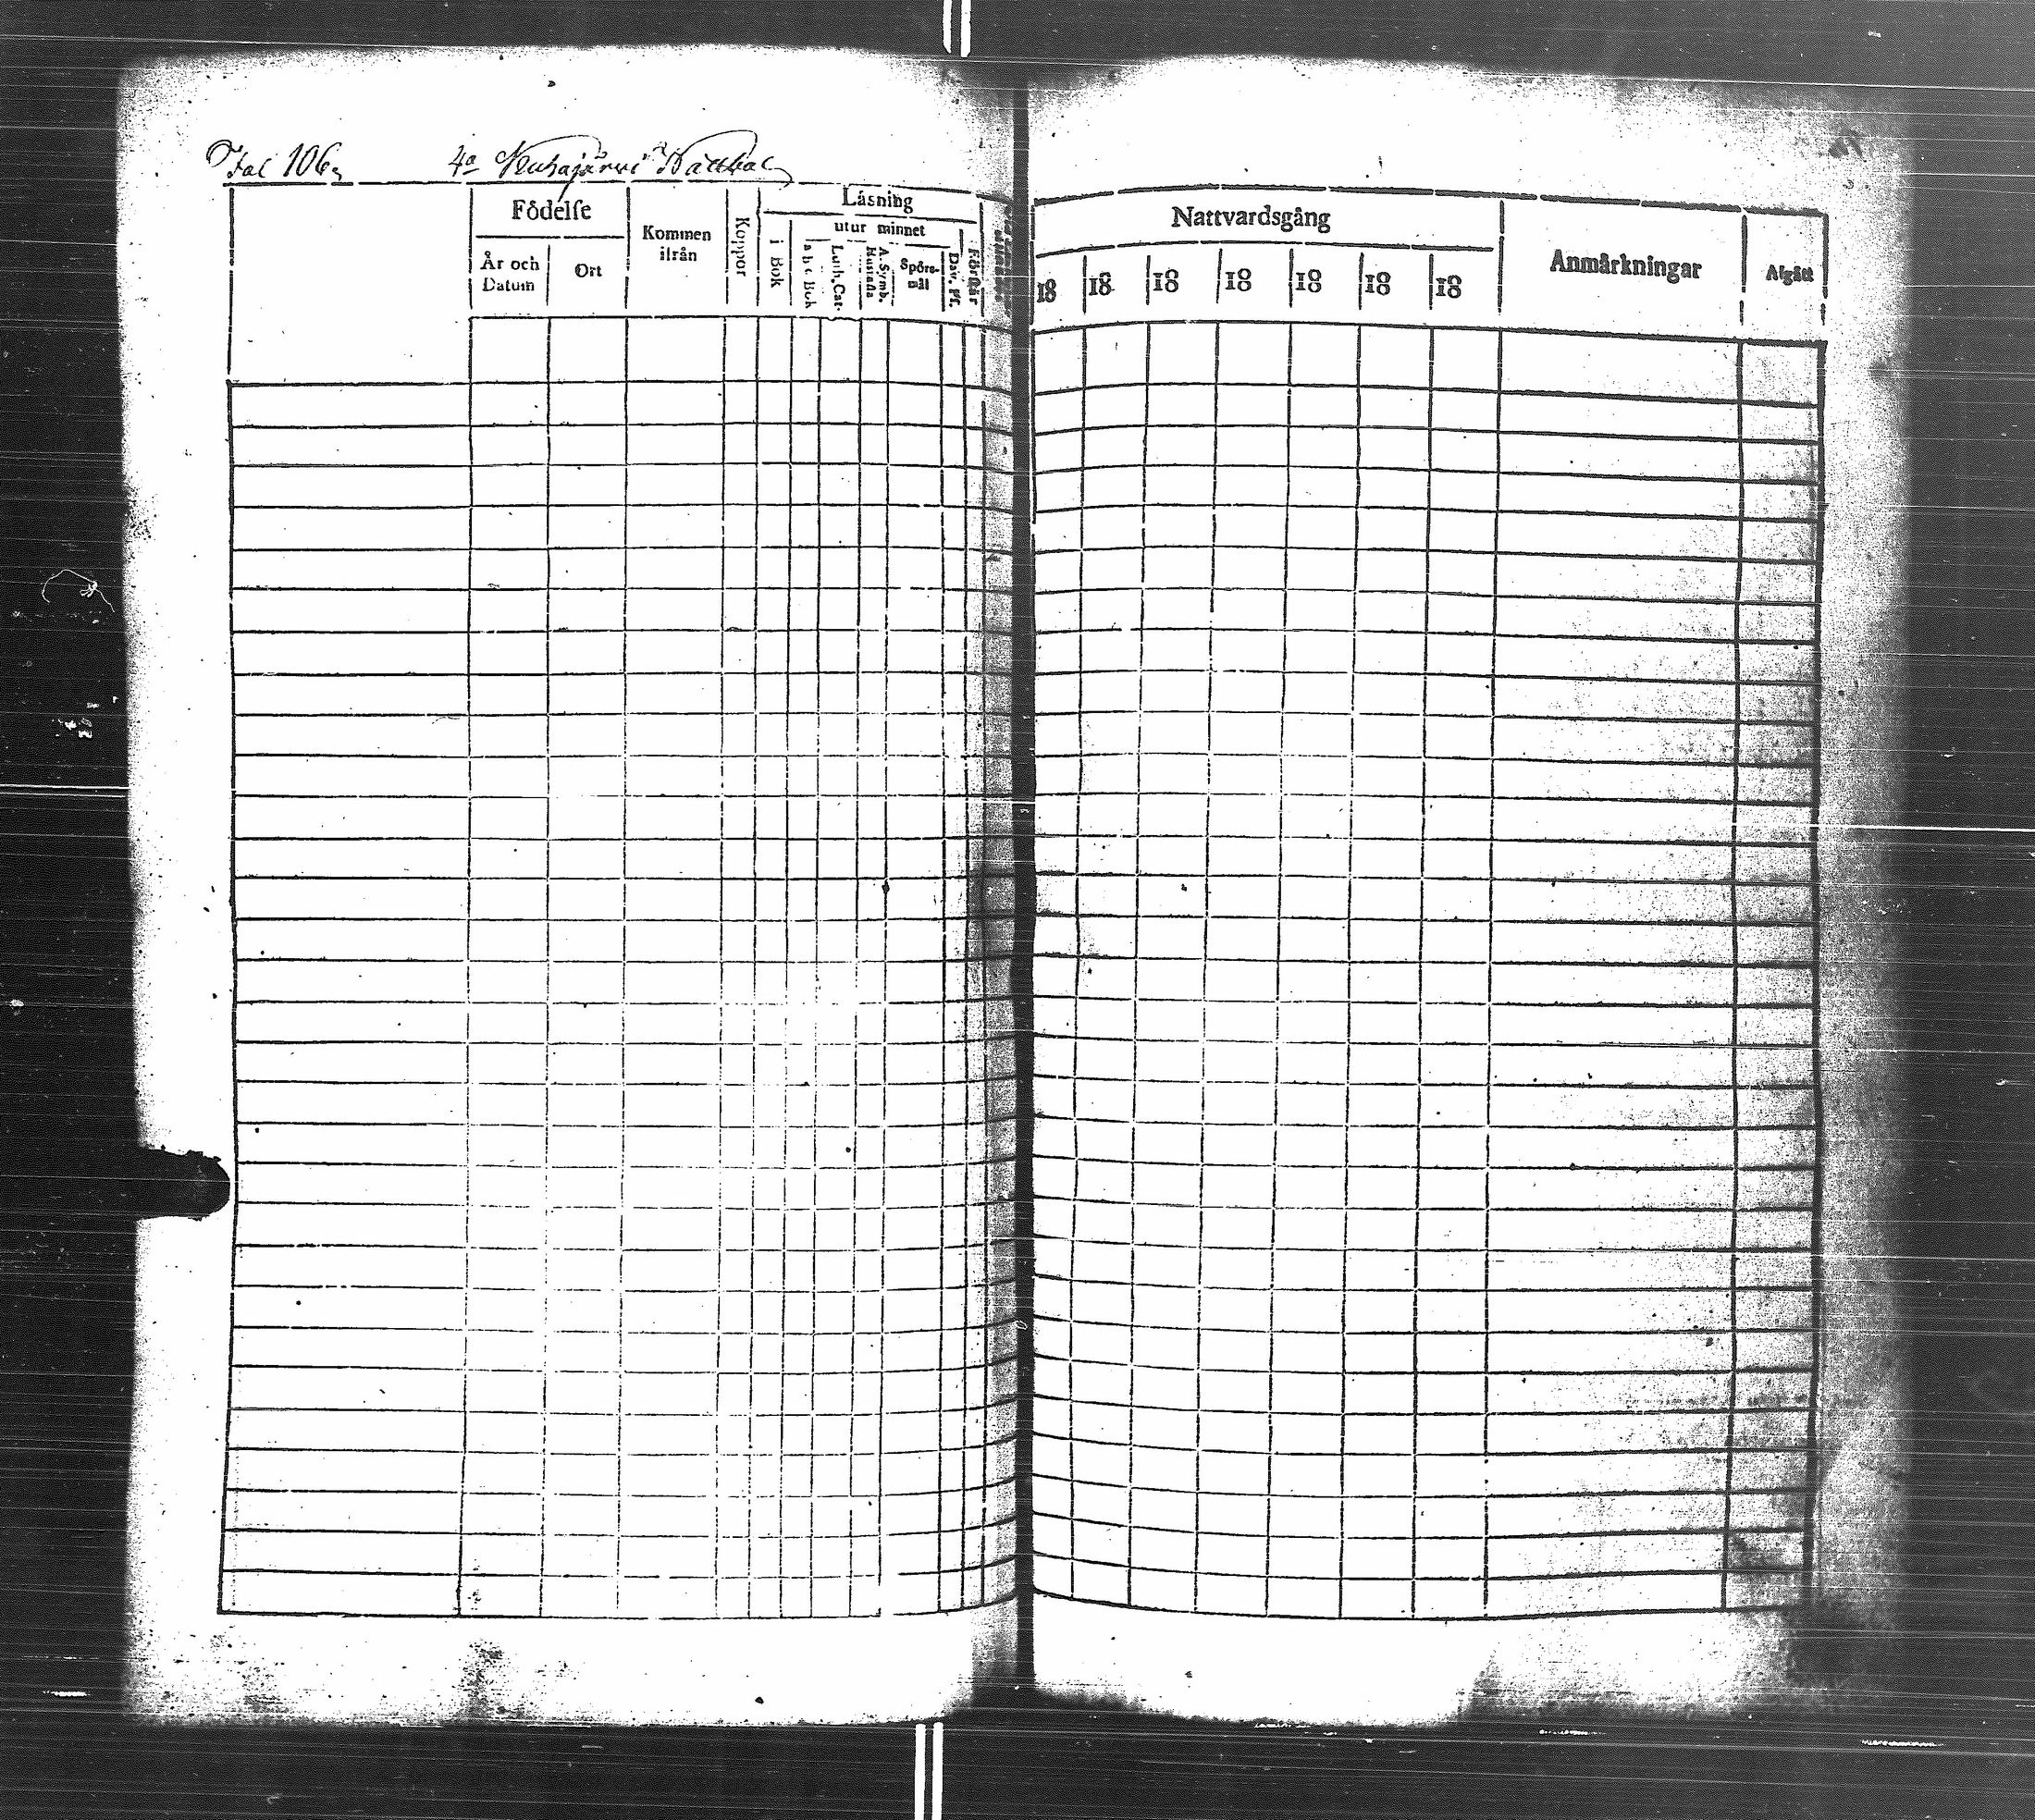 Fol 106. 4a Kuhajärvi
Födelse
År och Datum
Ort
Kommen ifrån
Koppor
Läsning
i Bok
utur minnet
a b c Bok
Luth. Cat.
A. Symb. Hustafla
Spörsmål
Dav. Ps.
Förstår
Nattvardsgång
18 18 18 18 18 18 18
Anmärkningar
Afgått